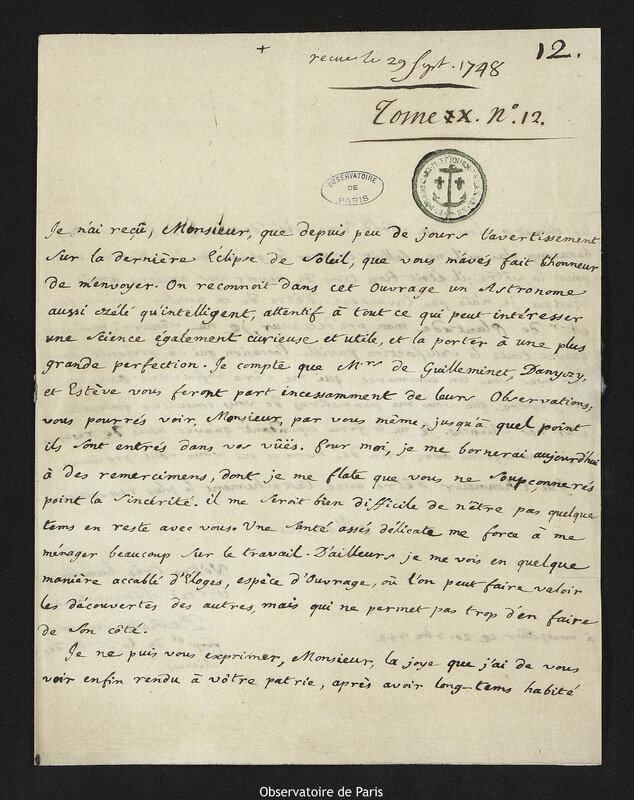 12.
+ recue le 29 Sept. 1748
Tome XX. N.º 12.
OBSERVATOIRE
DE
PARIS
Je n'ai reçû, Monsieur, que depuis peu de jours l'avertissement
sur la dernière Eclipse de Soleil, que vous m'avés fait l'honneur
de m'envoyer. On reconnoit dans cet Ouvrage un Astronome
aussi ozélé qu'intelligent, attentif à tout ce qui peut intéresser
une Science également curieuse et utile, et la porter à une plus
grande perfection. Je compte que Mrs de Guilleminet, Danyzy,
et Estève vous feront part incessamment de leurs Observations;
vous pourrés voir, Monsieur, par vous même, jusqu'à quel point
ils sont entrés dans vos vûës. Pour moi, je me bornerai aujourd'hui
à des remercimens, dont je me flate que vous ne soupçonnerés
point la sincérité. il me seroit bien difficile de n'être pas quelque
tems en reste avec vous. Une santé assés délicate me force à me
ménager beaucoup sur le travail. D'ailleurs je me vois en quelque
manière accablé d'Eloges, espèce d'Ouvrage, où l'on peut faire valoir
les découvertes des autres, mais qui ne permet pas trop d'en faire
de son côté.
Je ne puis vous exprimer, Monsieur, la joye que j'ai de vous
voir enfin rendu à vôtre patrie, après avoir long-tems habité
Observatoire de Paris